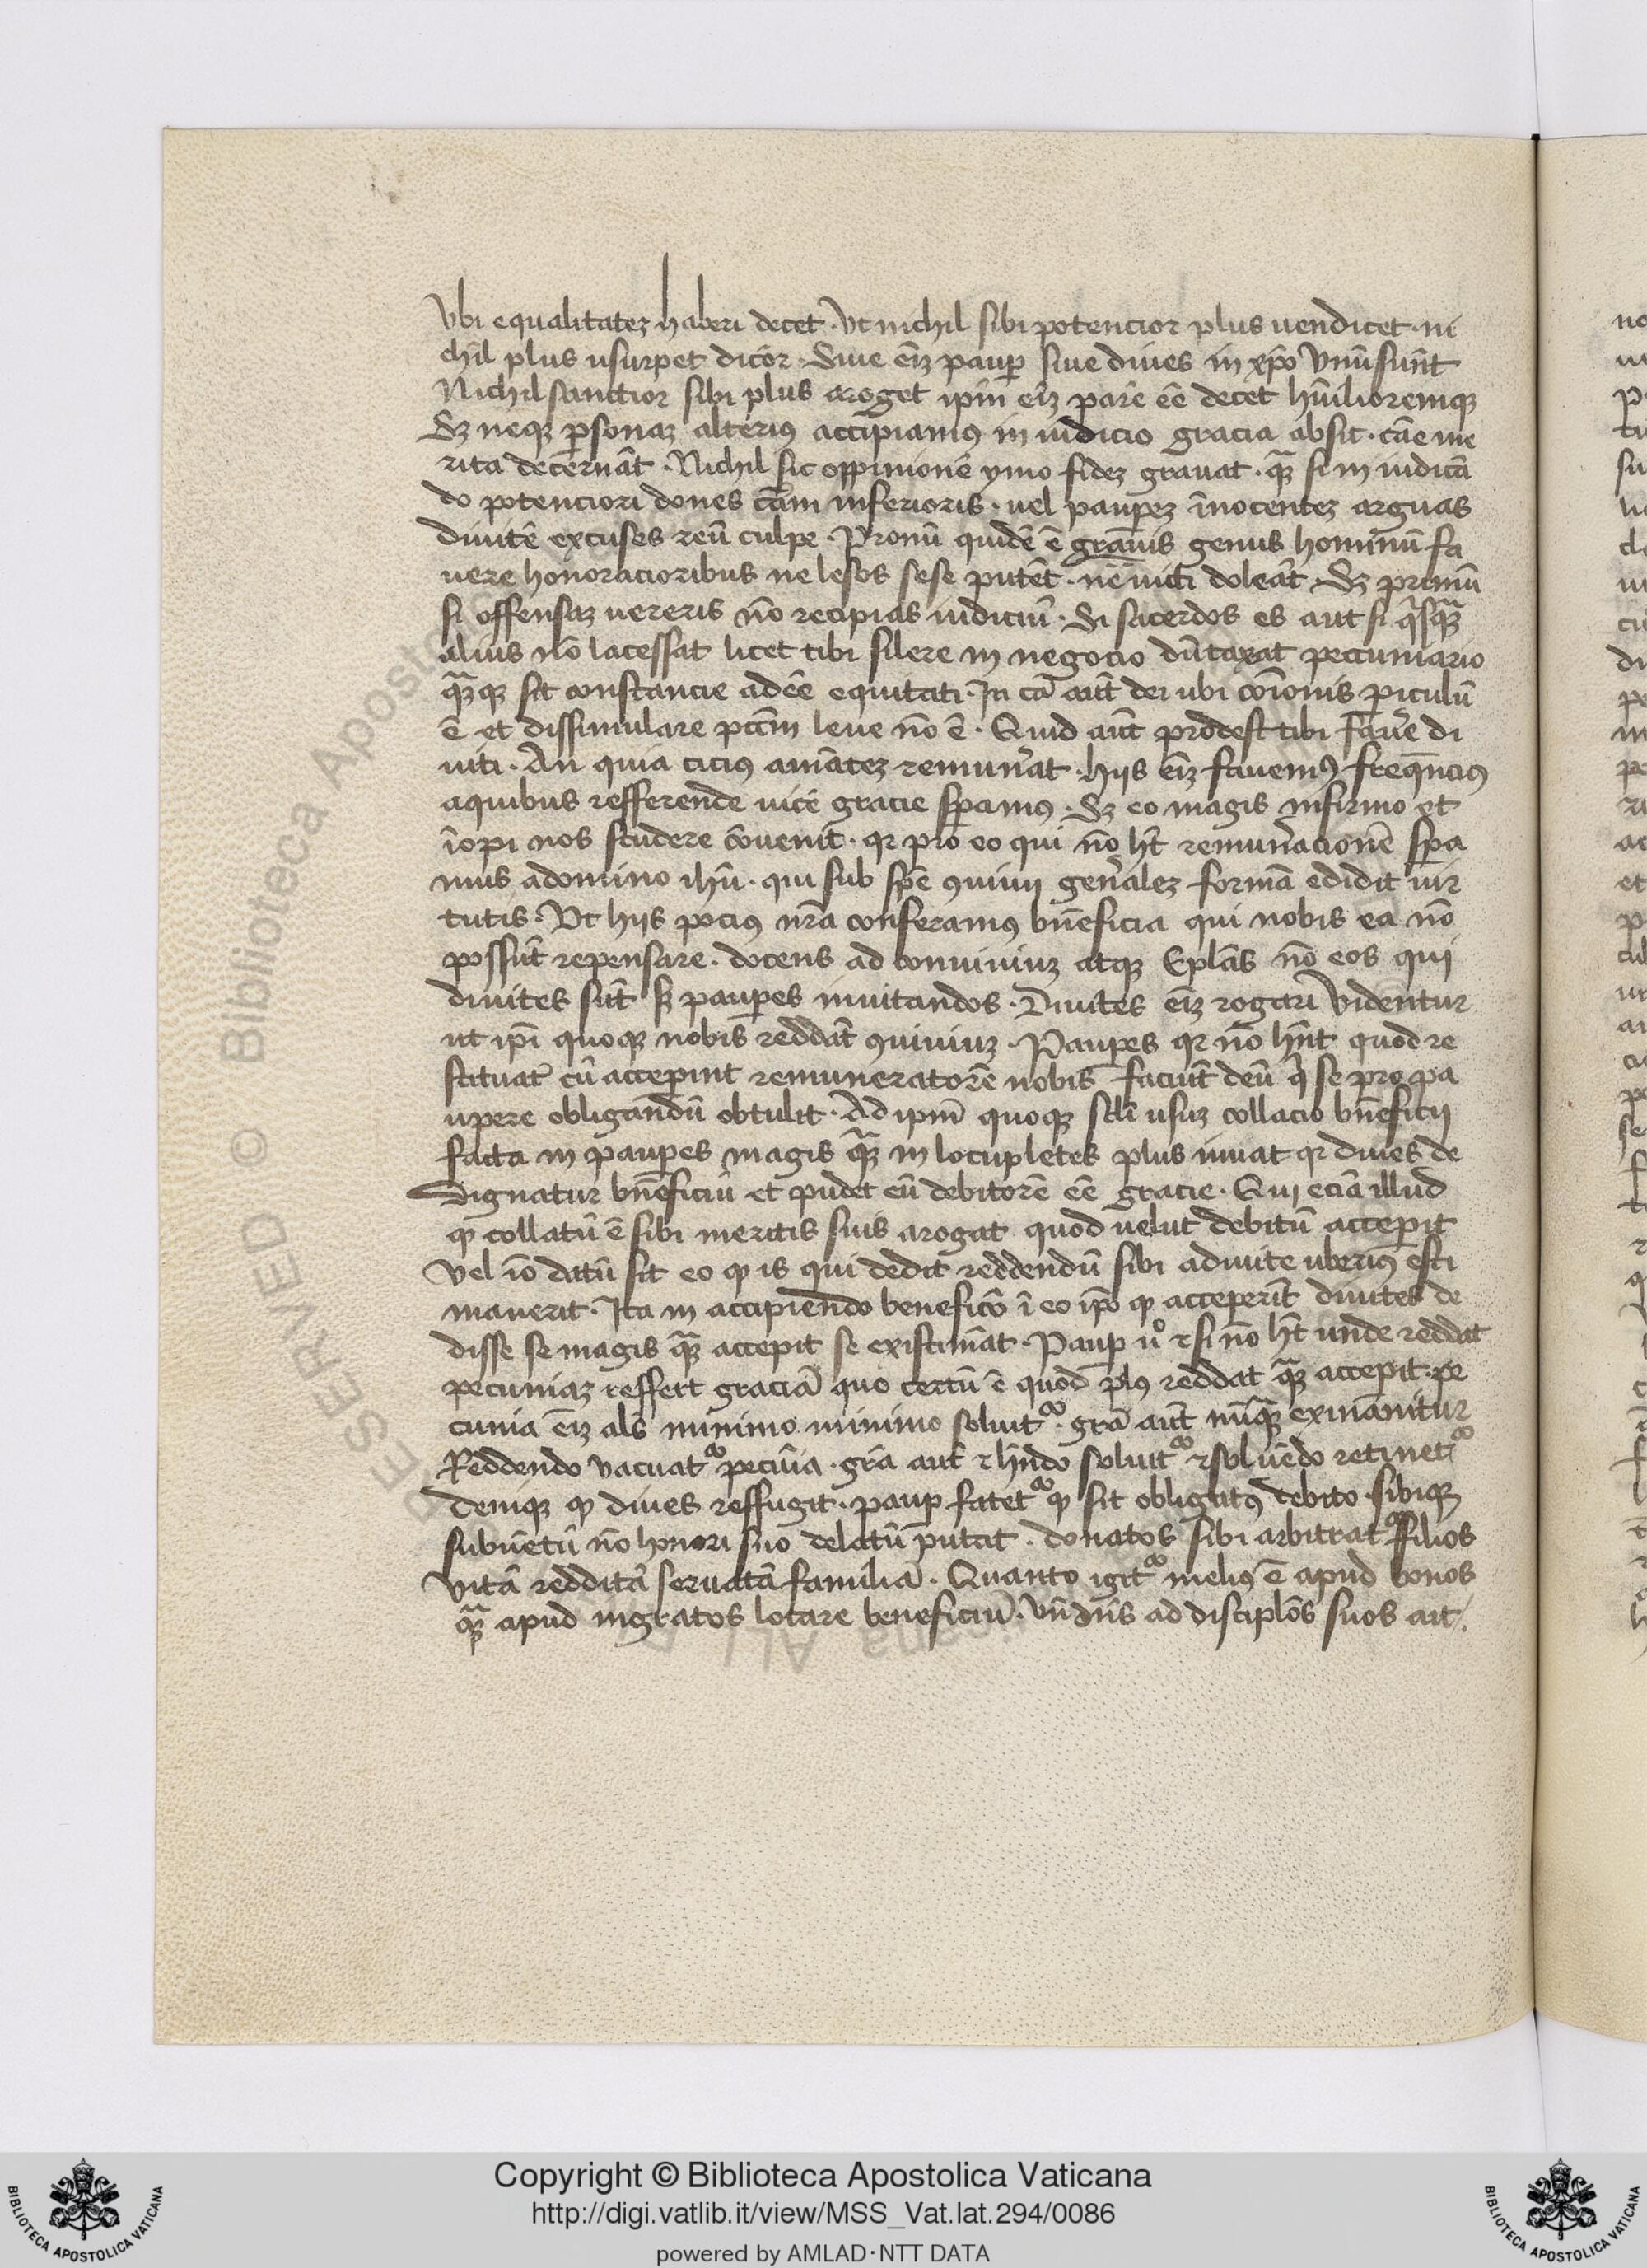 Vbi equalitatez haberi decet. Vt nichil sibi potencior plus uendicet. ni
chil plus usurpet dicior. Siue eīz paup̄ siue diues in xp̄o vnū sunt
Nichil sanctior sibi plus aroget ip̄m eīz parē eē decet hūilioremqz
Sz neqz p̄sonaz alterius accipiamus in iudicio gracia absit. cāe me
rita decernāt. Nichil sic oppinionē ymo fidez grauat. qᵃz si in iudicā
do potenciori dones cām inferioris. uel paup̄ez īnocentez arguas
diuitē excuses reū culpe. Pronū quidē ē genus hominū fa
uere honoracioribus ne lesos sese putēt. ne uicti doleāt. Sz primū
si offensaz uereris nō recipias iudiciū. Si sacerdos es aut si qⁱsqᵃz
alius nō lacessat licet tibi silere in negocio dūtaxat peccuniario
qᵃzqz sit constancie adeē equitati. In cā aūt dei ubi cōionis p̄iculū
ē et dissimulare pccm̄ leue nō ē. Quid aūt prodest tibi fauere di
uiti. An quia cicius amātez remun̄at. hijs eīz fauemus freqūcius
aquibus refferende uicē gracie sp̄amus. Sz eo magis infirmo et
īopi nos studere cōuenit. qr pro eo qui nō hт̄ remun̄acionē sp̄a
mus adomino ihū. qui sub spē ꝯuiuij gen̄alez formā edidit uir
tutis. Vt hijs pocius nr̄a conferamus bn̄eficia qui nobis ea nō
possūt repensare. docens ad conuiuiuz atqz Eplās nō eos qui
diuites sūt sz paup̄es inuitandos. Diuites eīz rogari videntur
ut ip̄i quoqz nobis reddāt ꝯuiuiuz. Paup̄es qr nō hn̄t quod re
stituāt cū accep̄int remuneratorē nobis faciūt deū qⁱ se pro pa
upere obligandū obtulit. Ad ip̄m quoqz scl̄i usuz collacio bn̄eficij
facta in paup̄es magis qᵃz in locupletes plus iuuat qr diues de
dignatur bn̄eficiū et pudet eū debitorē eē gracie. Qui eciā illud
ꝙ collatū ē sibi meritis suis arogat quod uelut debitū accep̄it
vel iō datū sit eo ꝙ is qui dedit reddendū sibi adiuite uberius esti
mauerit. Ita in accipiendo beneficō ī eo ip̄o ꝙ acceperīt diuites de
disse se magis qᵃz accepit se existimāt. Paup̄ uº ⁊ si nō hт̄ unde reddat
pecuniaz reffert graciā quo certū ē quod plus reddat qᵃz accepit. pe
cunia eīz als̄ nūmmo nūmmo soluit᷑. grā aūt nūqᵃz exinanitur
Reddendo vacuat᷑ pecūia. grā aūt ⁊ hn̄do soluit᷑ ⁊ soluēdo retinet᷑
deniqz ꝙ diues reffugit. paup̄ fatet᷑ ꝙ sit obligatus debito. sibiqz
subuētū nō honori suo delatū putat. donatos sibi arbitrat᷑ filios
vitā redditā seruatā familiā. Quanto igit᷑ melius ē apud bonos
qᵃz apud ingratos locare beneficiū. vn̄ dn̄s ad discip̄los suos ait.
Copyright © Biblioteca Apostolica Vaticana
http://digi.vatlib.it/view/MSS_Vat.lat.294/0086
powered by AMLAD·NTT DATA
BIBLIOTECA APOSTOLICA VATICANA
BIBLIOTECA APOSTOLICA VATICANA